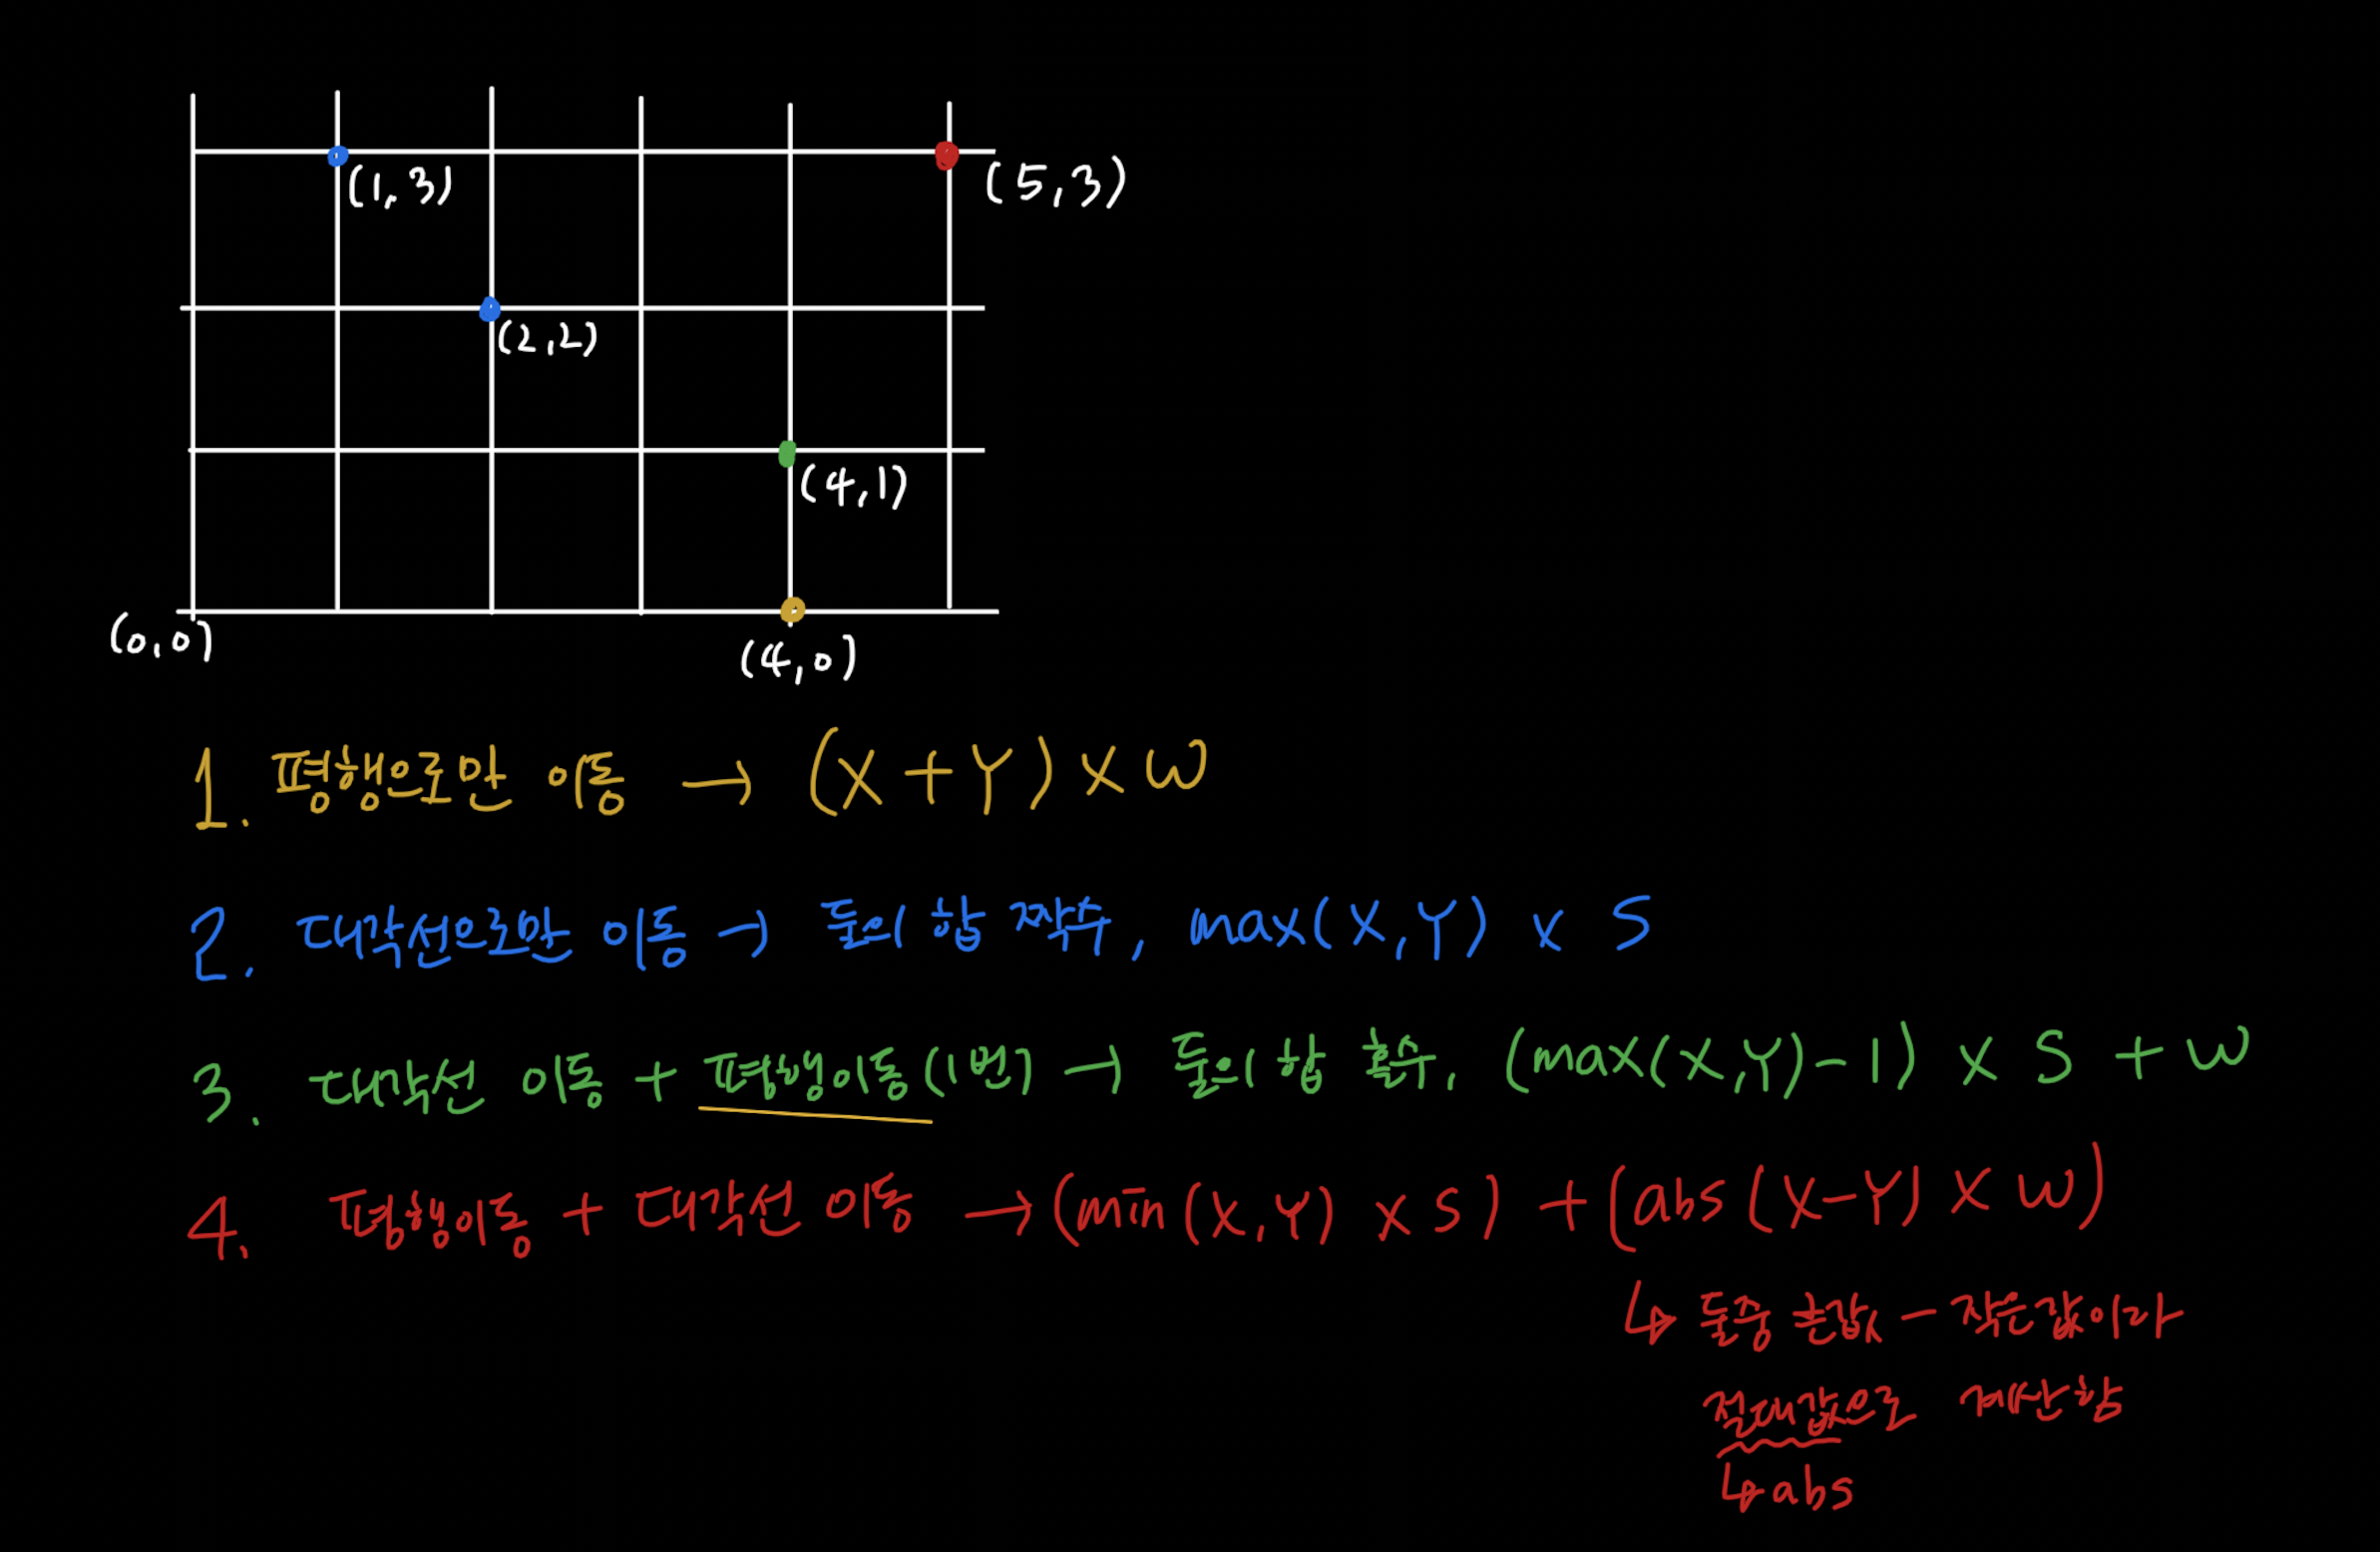 (1,3)
(5,3)
(2,2)
(4,1)
(0,0)
(4,0)
1. 평행으로만 이동 → (X+Y) x W
2. 대각선으로만 이동 → 둘의 합 짝수, max(X,Y) x S
3. 대각선 이동 + 평행이동(1번) → 둘의 합 홀수, (max(X,Y)-1) x S + W
4. 평행이동 + 대각선 이동 → (min(X,Y) x S) + (abs(X-Y) x W)
↳ 둘중 큰값 - 작은값이라
절대값으로 계산함
↳ abs